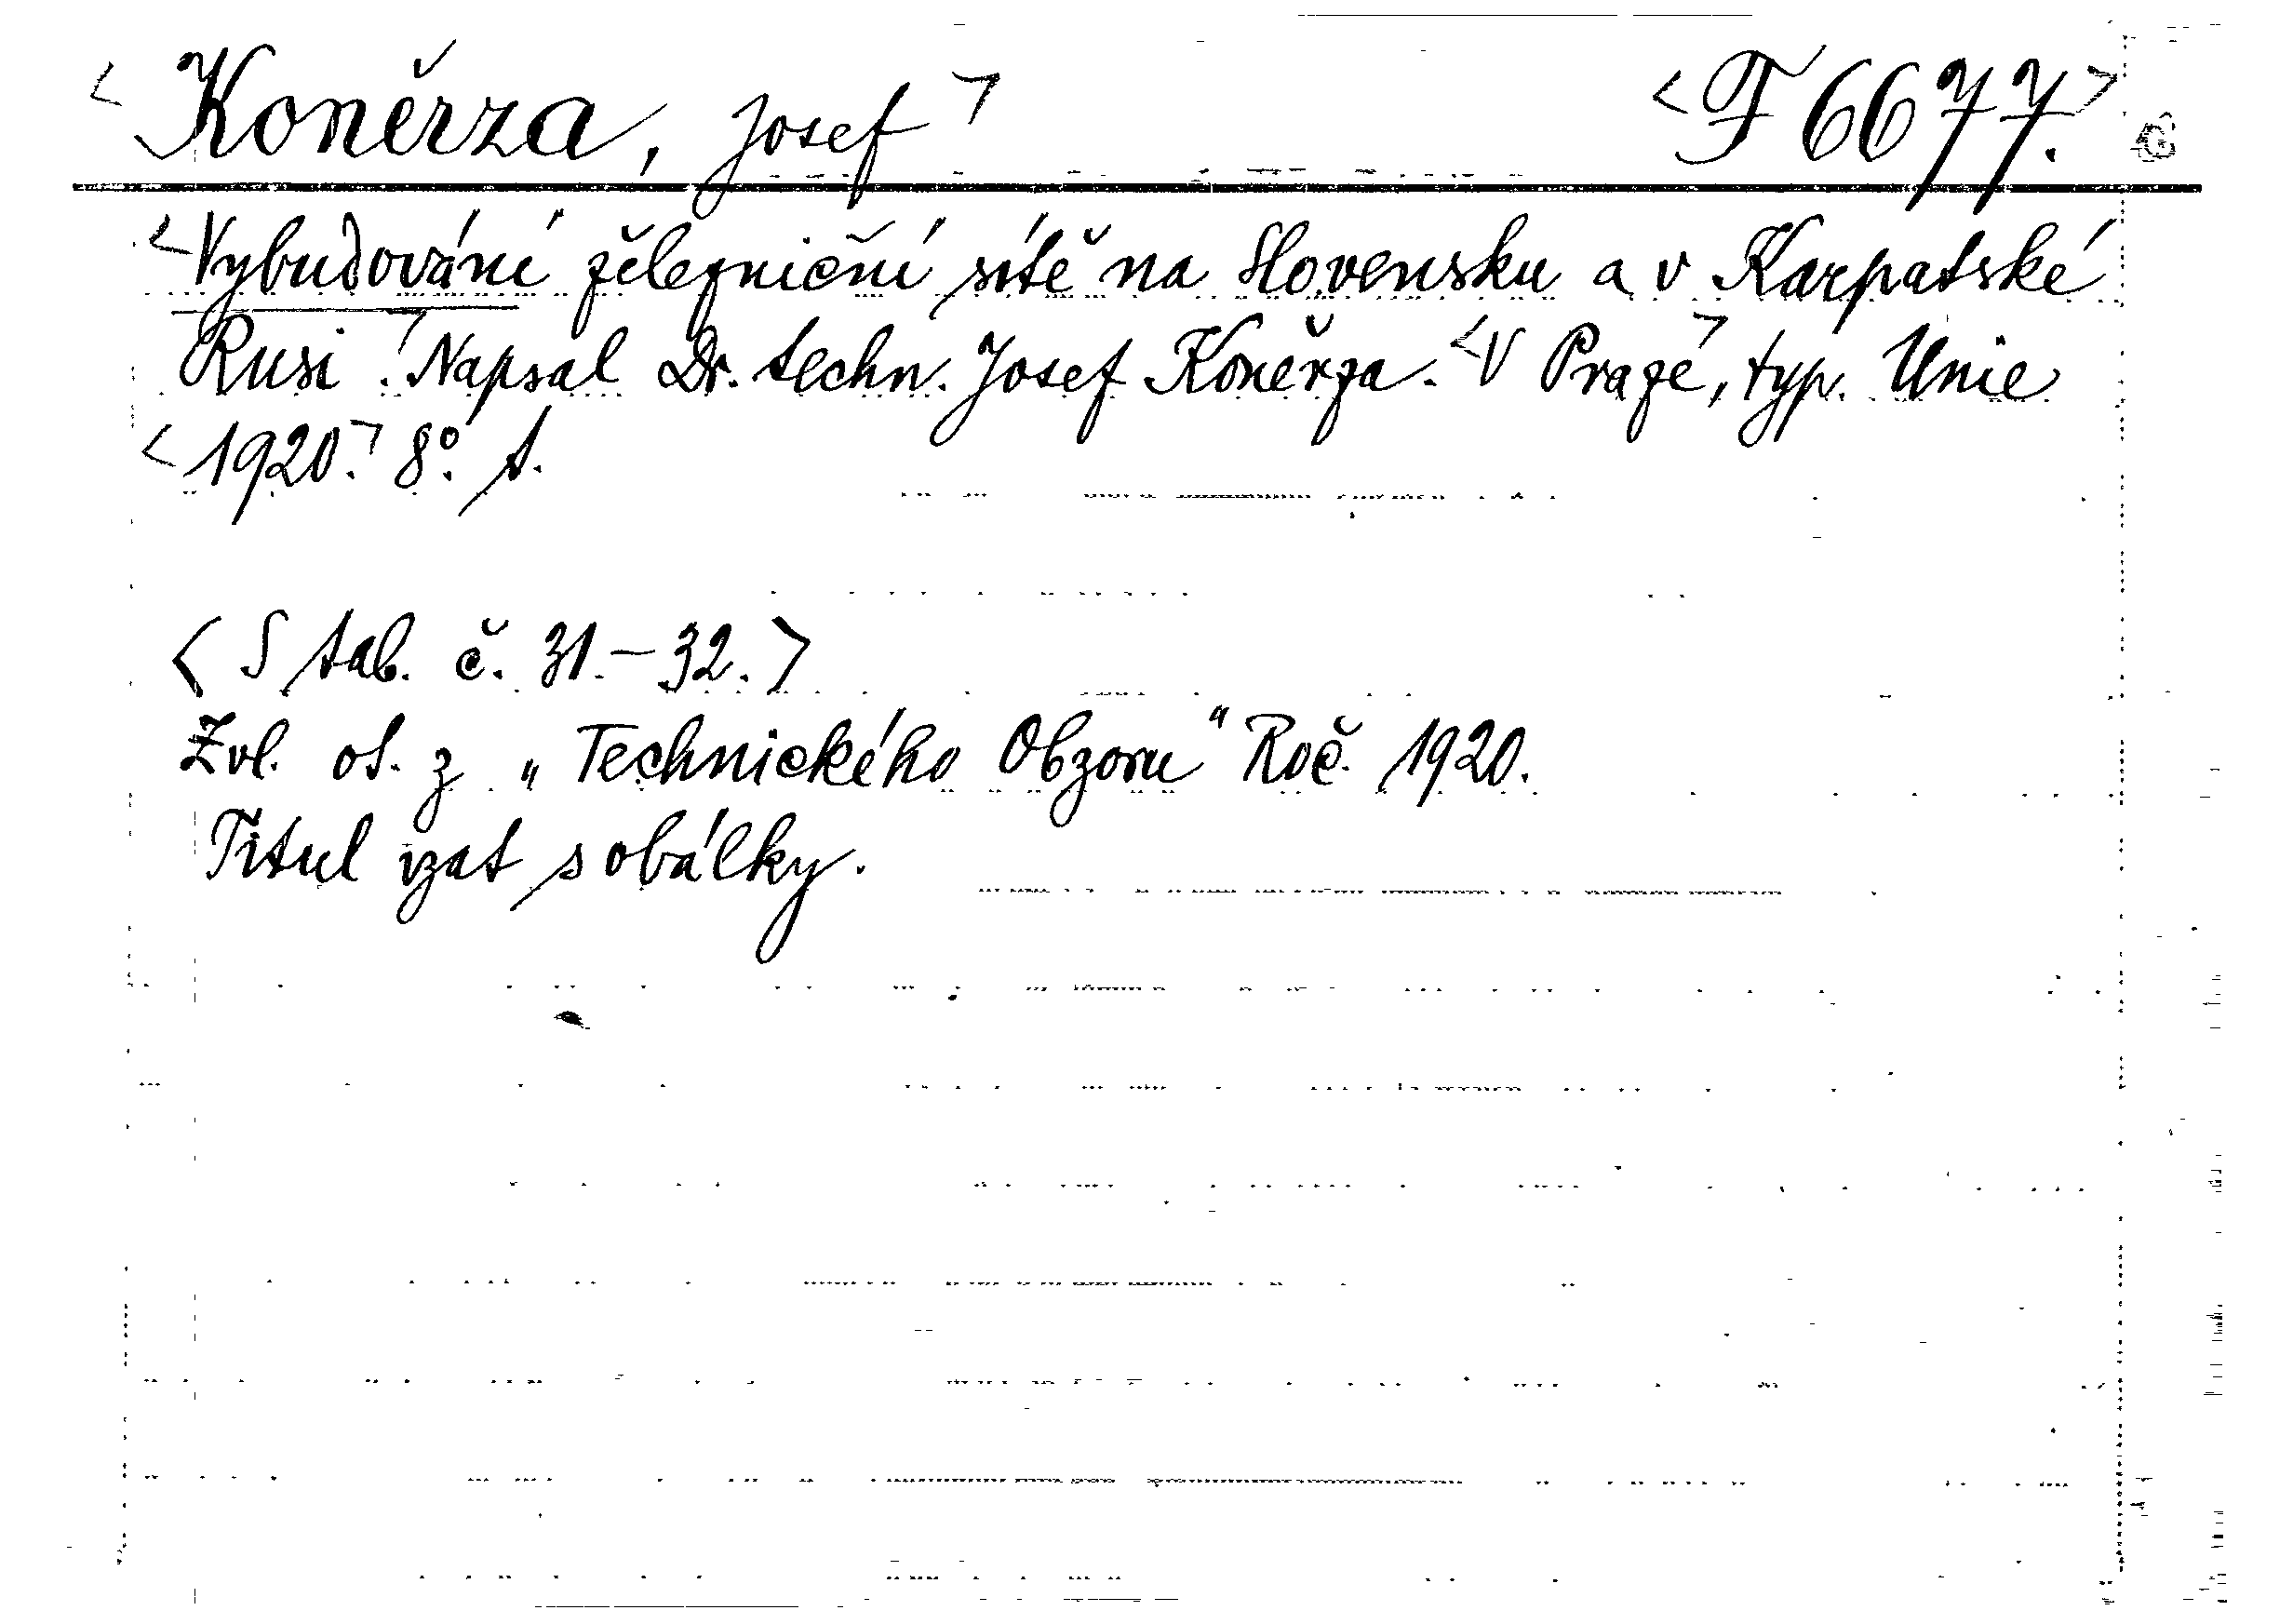 <Koněrza, Josef> <F 6677.>
<Vybudování železniční sítě na Slovensku a v Karpatské
Rusi. Napsal Dr. techn. Josef Koněrza. <V Praze>, typ. Unie
<1920.> 8°. s.
<S tab. č. 31.-32.>
Zvl. ot. z „Technického Obzoru" Roč. 1920.
Titul vzat s obálky.